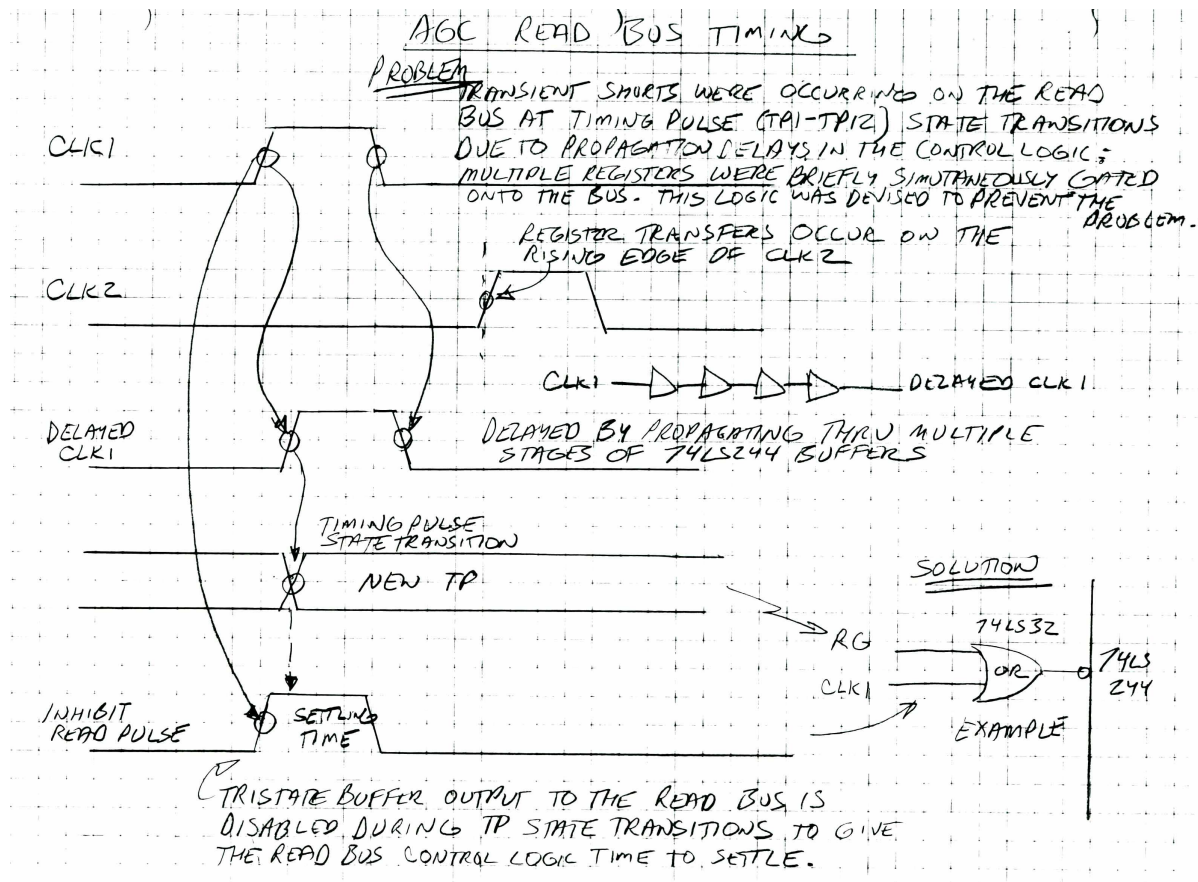 AGC READ BUS TIMING
PROBLEM
TRANSIENT SHORTS WERE OCCURRING ON THE READ
BUS AT TIMING PULSE (TP1-TP12) STATE TRANSITIONS
DUE TO PROPAGATION DELAYS IN THE CONTROL LOGIC;
MULTIPLE REGISTERS WERE BRIEFLY SIMUTANEOUSLY GATED
ONTO THE BUS. THIS LOGIC WAS DEVISED TO PREVENT THE
PROBLEM.
CLK1
REGISTER TRANSFERS OCCUR ON THE
RISING EDGE OF CLK2
CLK2
CLK1
DELAYED CLK1
DELAYED
CLK1
DELAYED BY PROPAGATING THRU MULTIPLE
STAGES OF 74LS244 BUFFERS
TIMING PULSE
STATE TRANSITION
NEW TP
SOLUTION
74LS32
RG
CLK1
OR
74LS
244
EXAMPLE
INHIBIT
READ PULSE
SETTLING
TIME
TRISTATE BUFFER OUTPUT TO THE READ BUS IS
DISABLED DURING TP STATE TRANSITIONS TO GIVE
THE READ BUS CONTROL LOGIC TIME TO SETTLE.